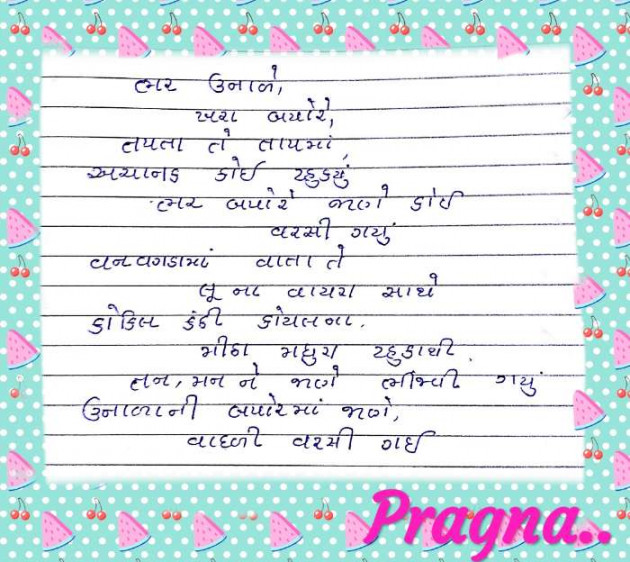 ભર ઉનાળે,
ખરા બપોરે,
તપતા તે તાપમાં,
અચાનક કોઈ ટહુક્યું
ભર બપોરે જાણે કોઈ
વરસી ગયું
વનવગડામાં વાતા તે
લૂ ના વાયરા સાથે
કોકિલ કંઠી કોયલના.
મીઠા મધુરા ટહુકાથી.
તન, મન ને જાણે ભીંજવી ગયું
ઉનાળાની બપોરમાં જાણે,
વાદળી વરસી ગઈ
Pragna..